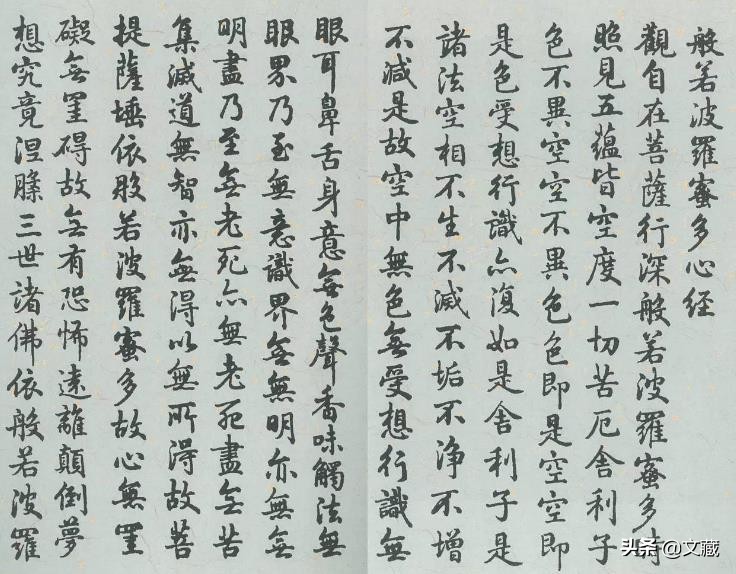 般若波羅蜜多心经
觀自在菩薩行深般若波羅蜜多時
照見五蘊皆空度一切苦厄舍利子
色不異空空不異色色即是空空即
是色受想行識亦復如是舍利子是
諸法空相不生不滅不垢不净不增
不減是故空中無色無受想行識無
眼耳鼻舌身意無色聲香味觸法無
眼界乃至無意識界無無明亦無無
明盡乃至無老死亦無老死盡無苦
集滅道無智亦無得以無所得故菩
提薩埵依般若波羅蜜多故心無罣
礙無罣碍故無有恐怖遠離顛倒夢
想究竟涅槃三世諸佛依般若波羅
头条@文藏